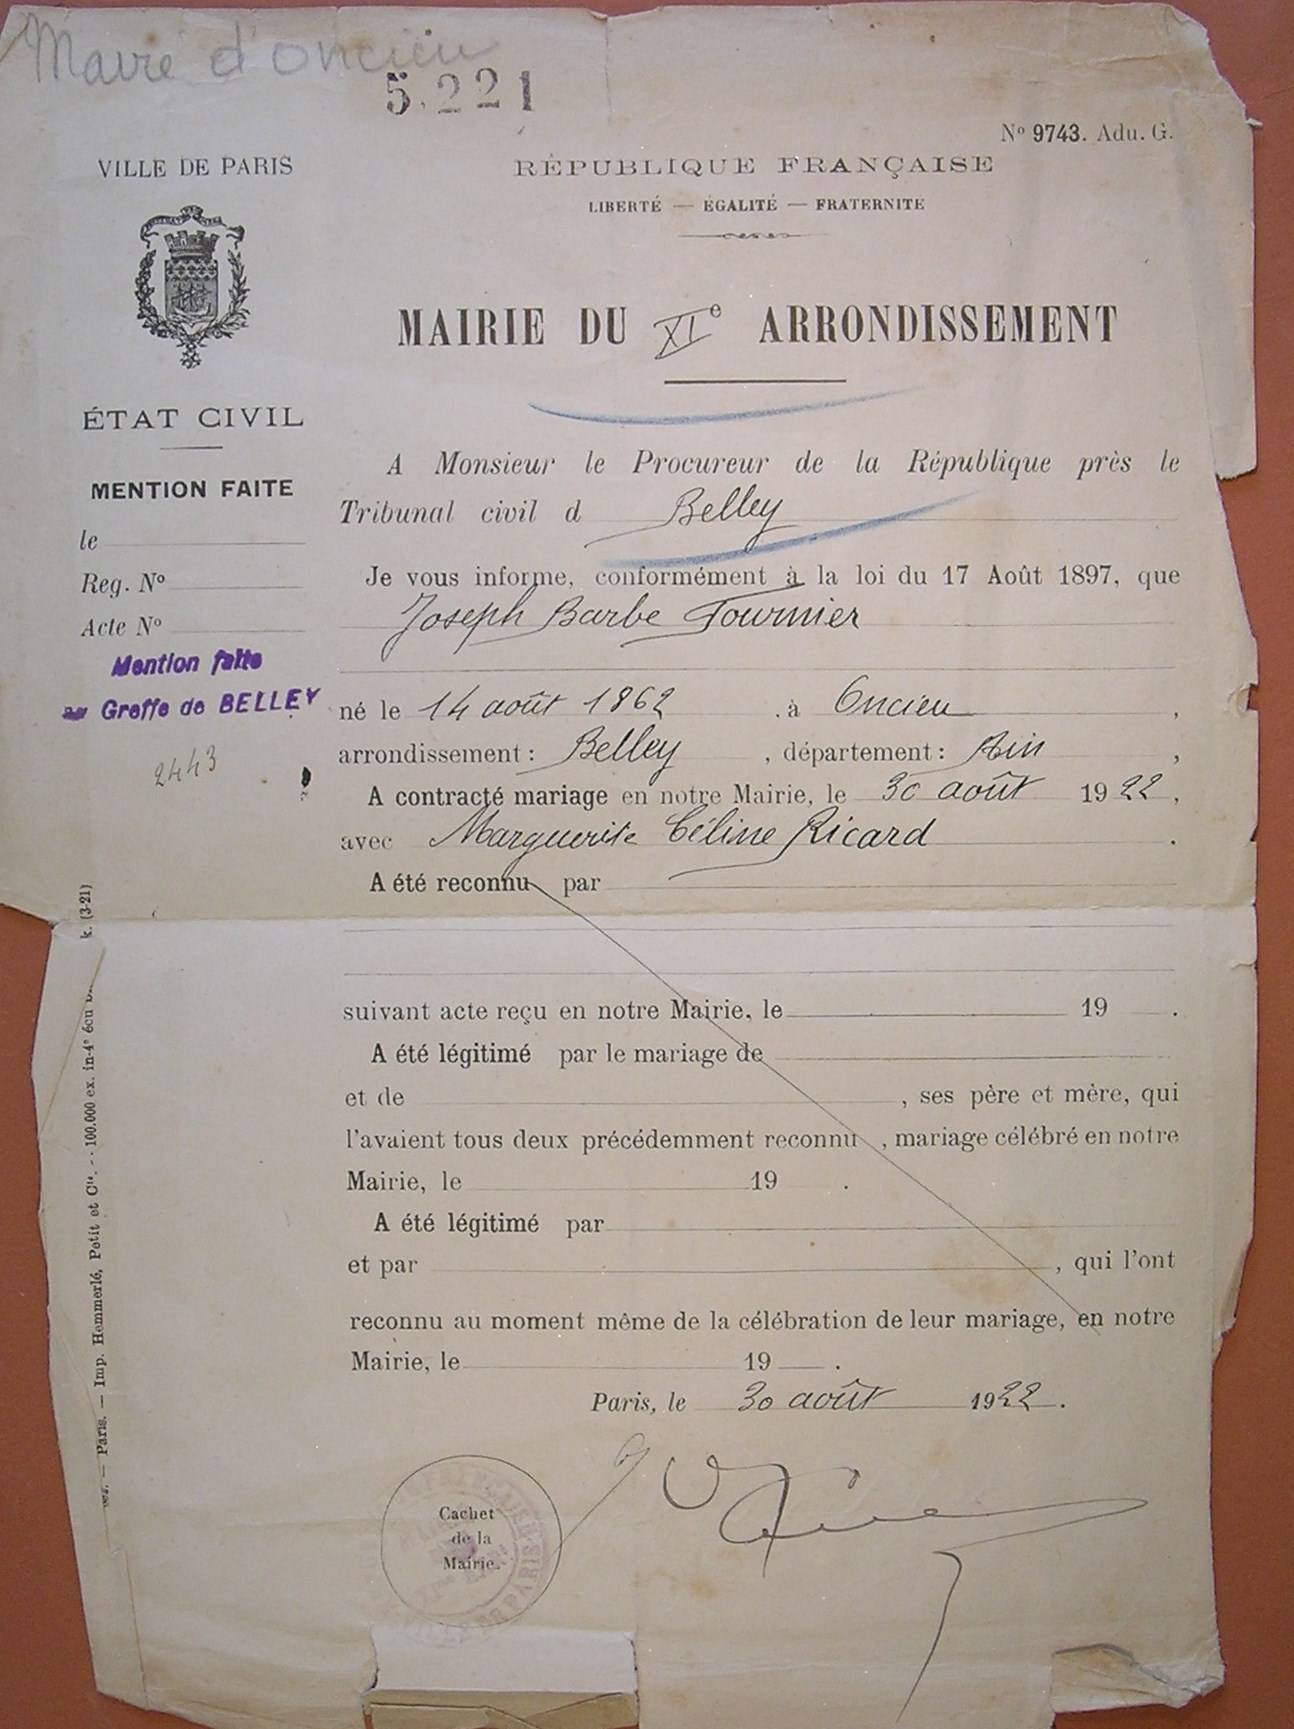 Maire d'oncieu
5.221
Nº 9743. Adu. G.
VILLE DE PARIS
RÉPUBLIQUE FRANÇAISE
LIBERTÉ — ÉGALITÉ — FRATERNITÉ
MAIRIE DU XIe ARRONDISSEMENT
ÉTAT CIVIL
MENTION FAITE
le
Reg. Nº
Acte Nº
Mention faite
au Greffe de BELLEY
2443
A Monsieur le Procureur de la République près le
Tribunal civil d Belley
Je vous informe, conformément à la loi du 17 Août 1897, que
Joseph Barbe Fournier
né le 14 août 1862 . à Oncieu ,
arrondissement : Belley , département : Ain ,
A contracté mariage en notre Mairie, le 30 août 1922,
avec Marguerite Céline Ricard .
A été reconnu par
suivant acte reçu en notre Mairie, le 19 .
A été légitimé par le mariage de
et de , ses père et mère, qui
l'avaient tous deux précédemment reconnu , mariage célébré en notre
Mairie, le 19 .
A été légitimé par
et par , qui l'ont
reconnu au moment même de la célébration de leur mariage, en notre
Mairie, le 19 .
Paris, le 30 août 1922.
Cachet
de la
Mairie.
— Paris. — Imp. Hemmerlé, Petit et Cie. - - 100.000 ex. in-4º écu k. (3-21)